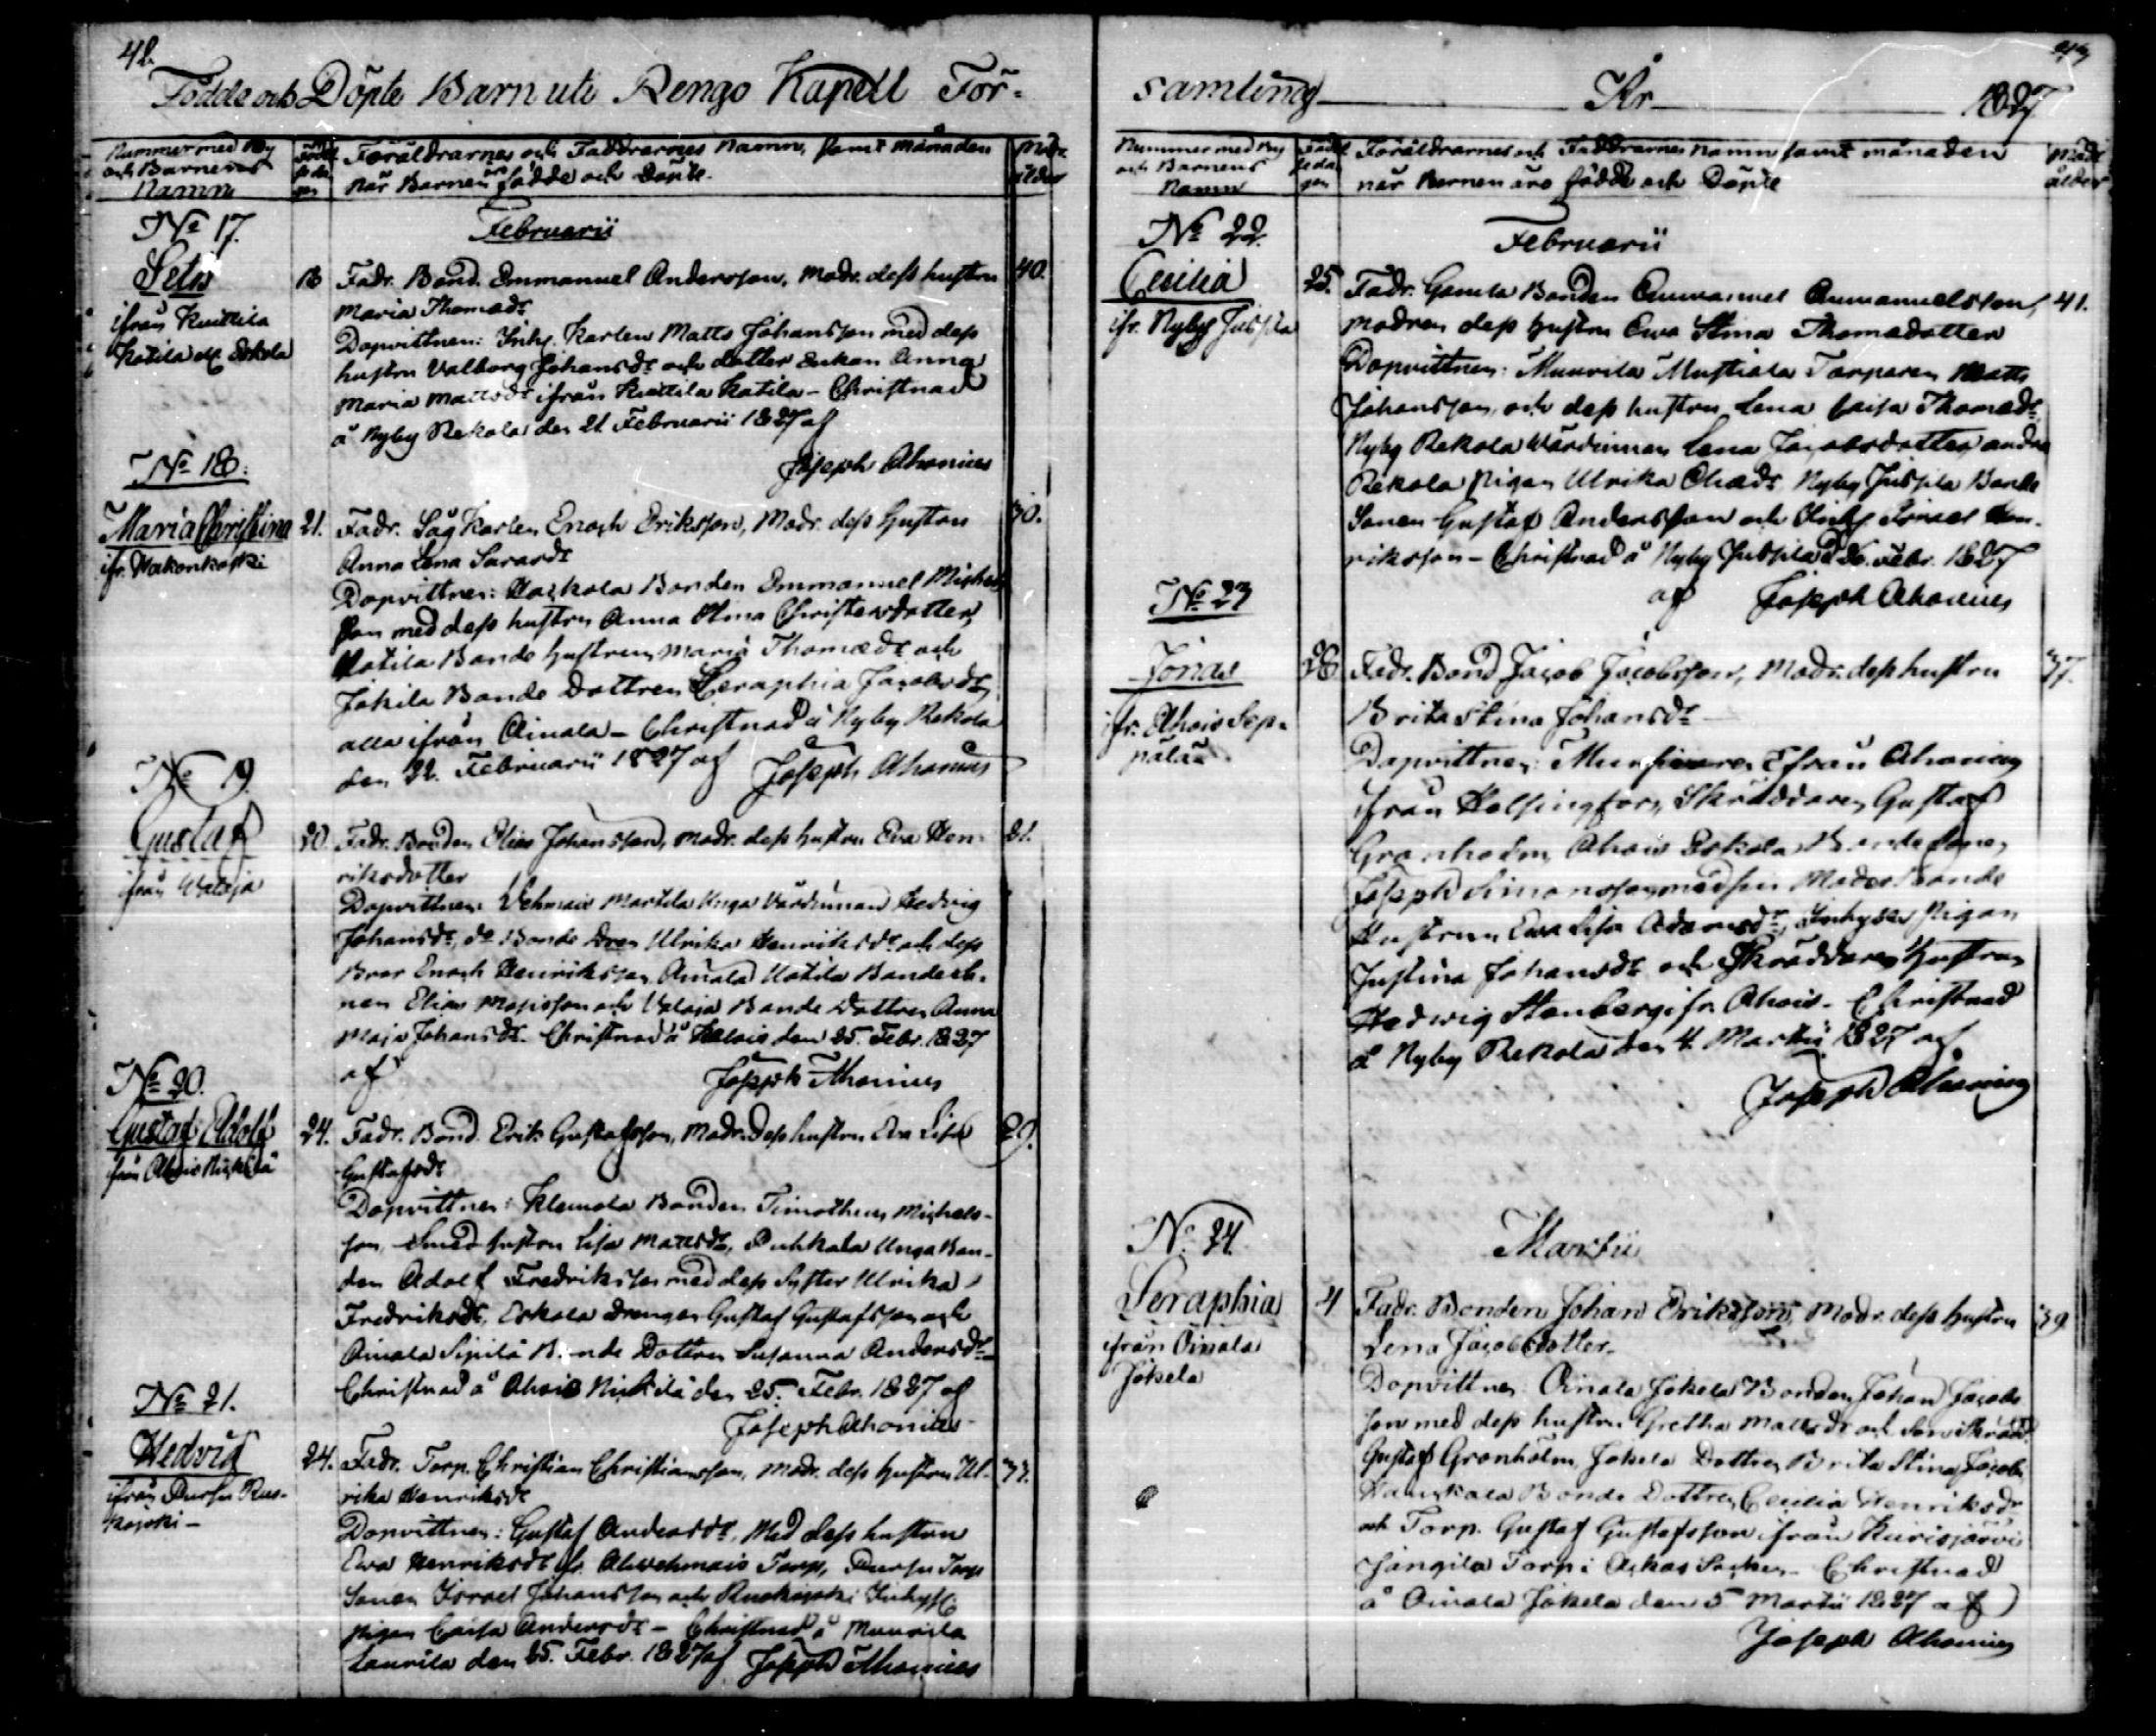 42.
Födde och Döpte Barn uti Rengo Kapell För-
Nummer med By
och Barnens
Namn
Födel
seda
gen
Föräldrarnes och Faddrarnes Namn, samt månaden
När Barnen äro födde och Döpte.
Modr.
ålder
No 17.
Februarii
Setn
ifrån Kuittila
Katila
18
Fadr. Bond. Emmanuel Andersson, Modr. dess hustru
40.
Maria Thomædr
Dopvittnen: Inhy. Karlen Matts Johansson med dess
hustru Valborg Johansdr och dotter Enkan Anna
Maria Mattsdr ifrån Kuittila Katila - Christnad
å Nyby Rekola den 21 Februarii 1827 af
Joseph Ahonius
No 18.
Maria Christina
ifr. Wakonkoski
21.
Fadr. Såg Karlen Enoch Eriksson, Modr. dess Hustru
30.
Anna Lena
Dopvittnen: Bonden Emmanuel Michels
son med dess hustru Anna Stina Christersdotter,
Uotila Bonde hustrun Maria Thomædr och
Jokila Bonde Dottren Seraphia Jacobsdr,
alla ifrån Oinala - Christnad å Nyby Rekola
den 22. Februarii 1827 af
Joseph Ahonius
No 19.
Gustaf
ifrån Wataja
20
Fadr. Bonden Elias Johansson, Modr. dess hustru Eva Hen-
21.
riksdotter
Dopvittnen: Vehmais Martila Unga Värdinnan Hedvig
Johansdr, do Bonde Dren Ulrika Henriksdr och dess
Bror Enoch Henriksson, Oinala Uotila Bonde
nen Elias och Vataja Bonde Dottren Anna
Maja Johansdr. Christnad å den 25. Febr. 1827
af
Joseph Ahonius
No 20.
Gustaf Adolf
ifrån Ahois Nickilä
24.
Fadr. Bond. Erik Gustafsson, Modr. Dess hustru Eva Lisa
29.
Gustafsdr
Dopvittnen: Klemola Bonden Timotheus Michels-
son, Smed hustru Lisa Mattsdr, Puhkala Unga Bon-
den Adolf Fredriksson med dess Syster Ulrika
Fredriksdr, Eskola Drengen Gustaf Gustafsson och
Oinala Sipilä Bonde Dottren Susanna Andersdr
Christnad å Ahois Nickilä den 25. Febr. 1827 af
Joseph Ahonius
No 21.
Hedvig
ifrån Pursu Rus-
kojoki -
24.
Fadr. Torp. Christian Christiansson, Modr. dess hustru Ul-
37.
rika Henriksdr
Dopvittnen: Gustaf Andersdr, Med dess hustru
Eva Henriksdr fr. Torp, Pursu Torp
Sonen Israel Johansson och Ruskojoki Inhyses
pigan Caisa Andersdr - Christnad å Muurila
Laurila den 25. Febr. 1827 af Joseph Ahonius
43
samling År 1827
Nummer med By
och Barnens
Namn
Födel
seda
gen
Föräldrarnes och Faddrarnes Namn samt månaden
när Barnen äro födde och Döpte
Modr.
ålder
No 22.
Februarii
Cecilia
ifr. Nyby Jussila
25.
Fadr. Gamla Bonden Emmanuel Emmanuelsson,
41.
Modren dess hustru Ewa Stina Thomadotter
Dopvittnen: Muurila Mustiala Torparen Matts
Johansson, och dess hustru Lena Caisa Thomædr
Nyby Rekola Wärdinnan Lena Jacobsdotter andra
Rekola Pigan Ulrika Nyby Jussila Bonde
Sonen Gustaf Andersson och Israel Hen-
riksson - Christnad å Nyby Jussila d. 26. Febr. 1827
af Joseph Ahonius
No 23
Jonas
ifr. Ahois Sep-
pälä
28
Fadr. Bond Jacob Jacobsson, Modr. dess hustru
37.
Brita Stina Johansdr -
Dopvittnen: Ahonius
ifrån Helsingfors, Skräddaren Gustaf
Gronholm, Ahois Eskola Bonde Sonen
Joseph Simonsson med sin Moder Bonde
Hustrun Ewa Lisa Adamsdr, Inhyses Pigan
Justina Johansdr och Skräddaren Hustrun
Hedwig Stenberg ifr. Ahois - Christnad
å Nyby Rekola den 4. Martii 1827 af
Joseph Ahonius
No. 24
Martii
Seraphia
ifrån Oinala
Jokela
4
Fadr. Bonden Johan Eriksson, Modr. dess hustru
39
Lena Jacobsdotter.
Dopvittnen: Oinala Jokela Bonden Johan Jacobs
son med dess hustru Gretha Mattsdr och Son Skrädd.
Gustaf Gronholm, Jokela Dottren Brita Stina Jacobs
Bonde Dottren Cecilia Henriksdr
och Torp. Gustaf Gustafsson ifrån Kurisjärvi
Jangila Torp i Ackas Socken - Christnad
å Oinala Jokela den 5 Martii 1827 af
Joseph Ahonius